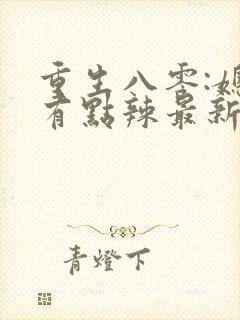 重生八零:媳
有點辣最新
青燈下